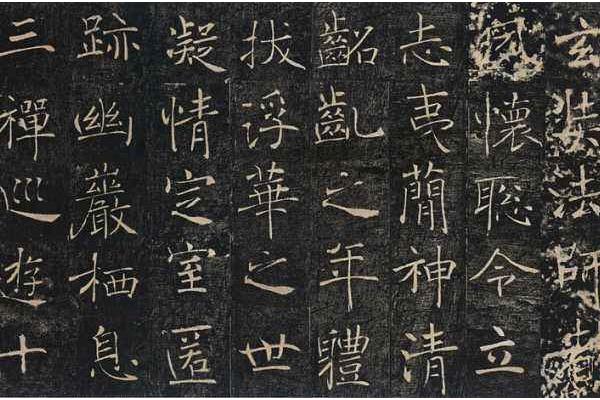 玄奘法師者
夙懷聦令立
志夷簡神清
齠齔之年體
拔浮華之世
凝情定室匿
跡幽巖栖息
三禪巡遊十